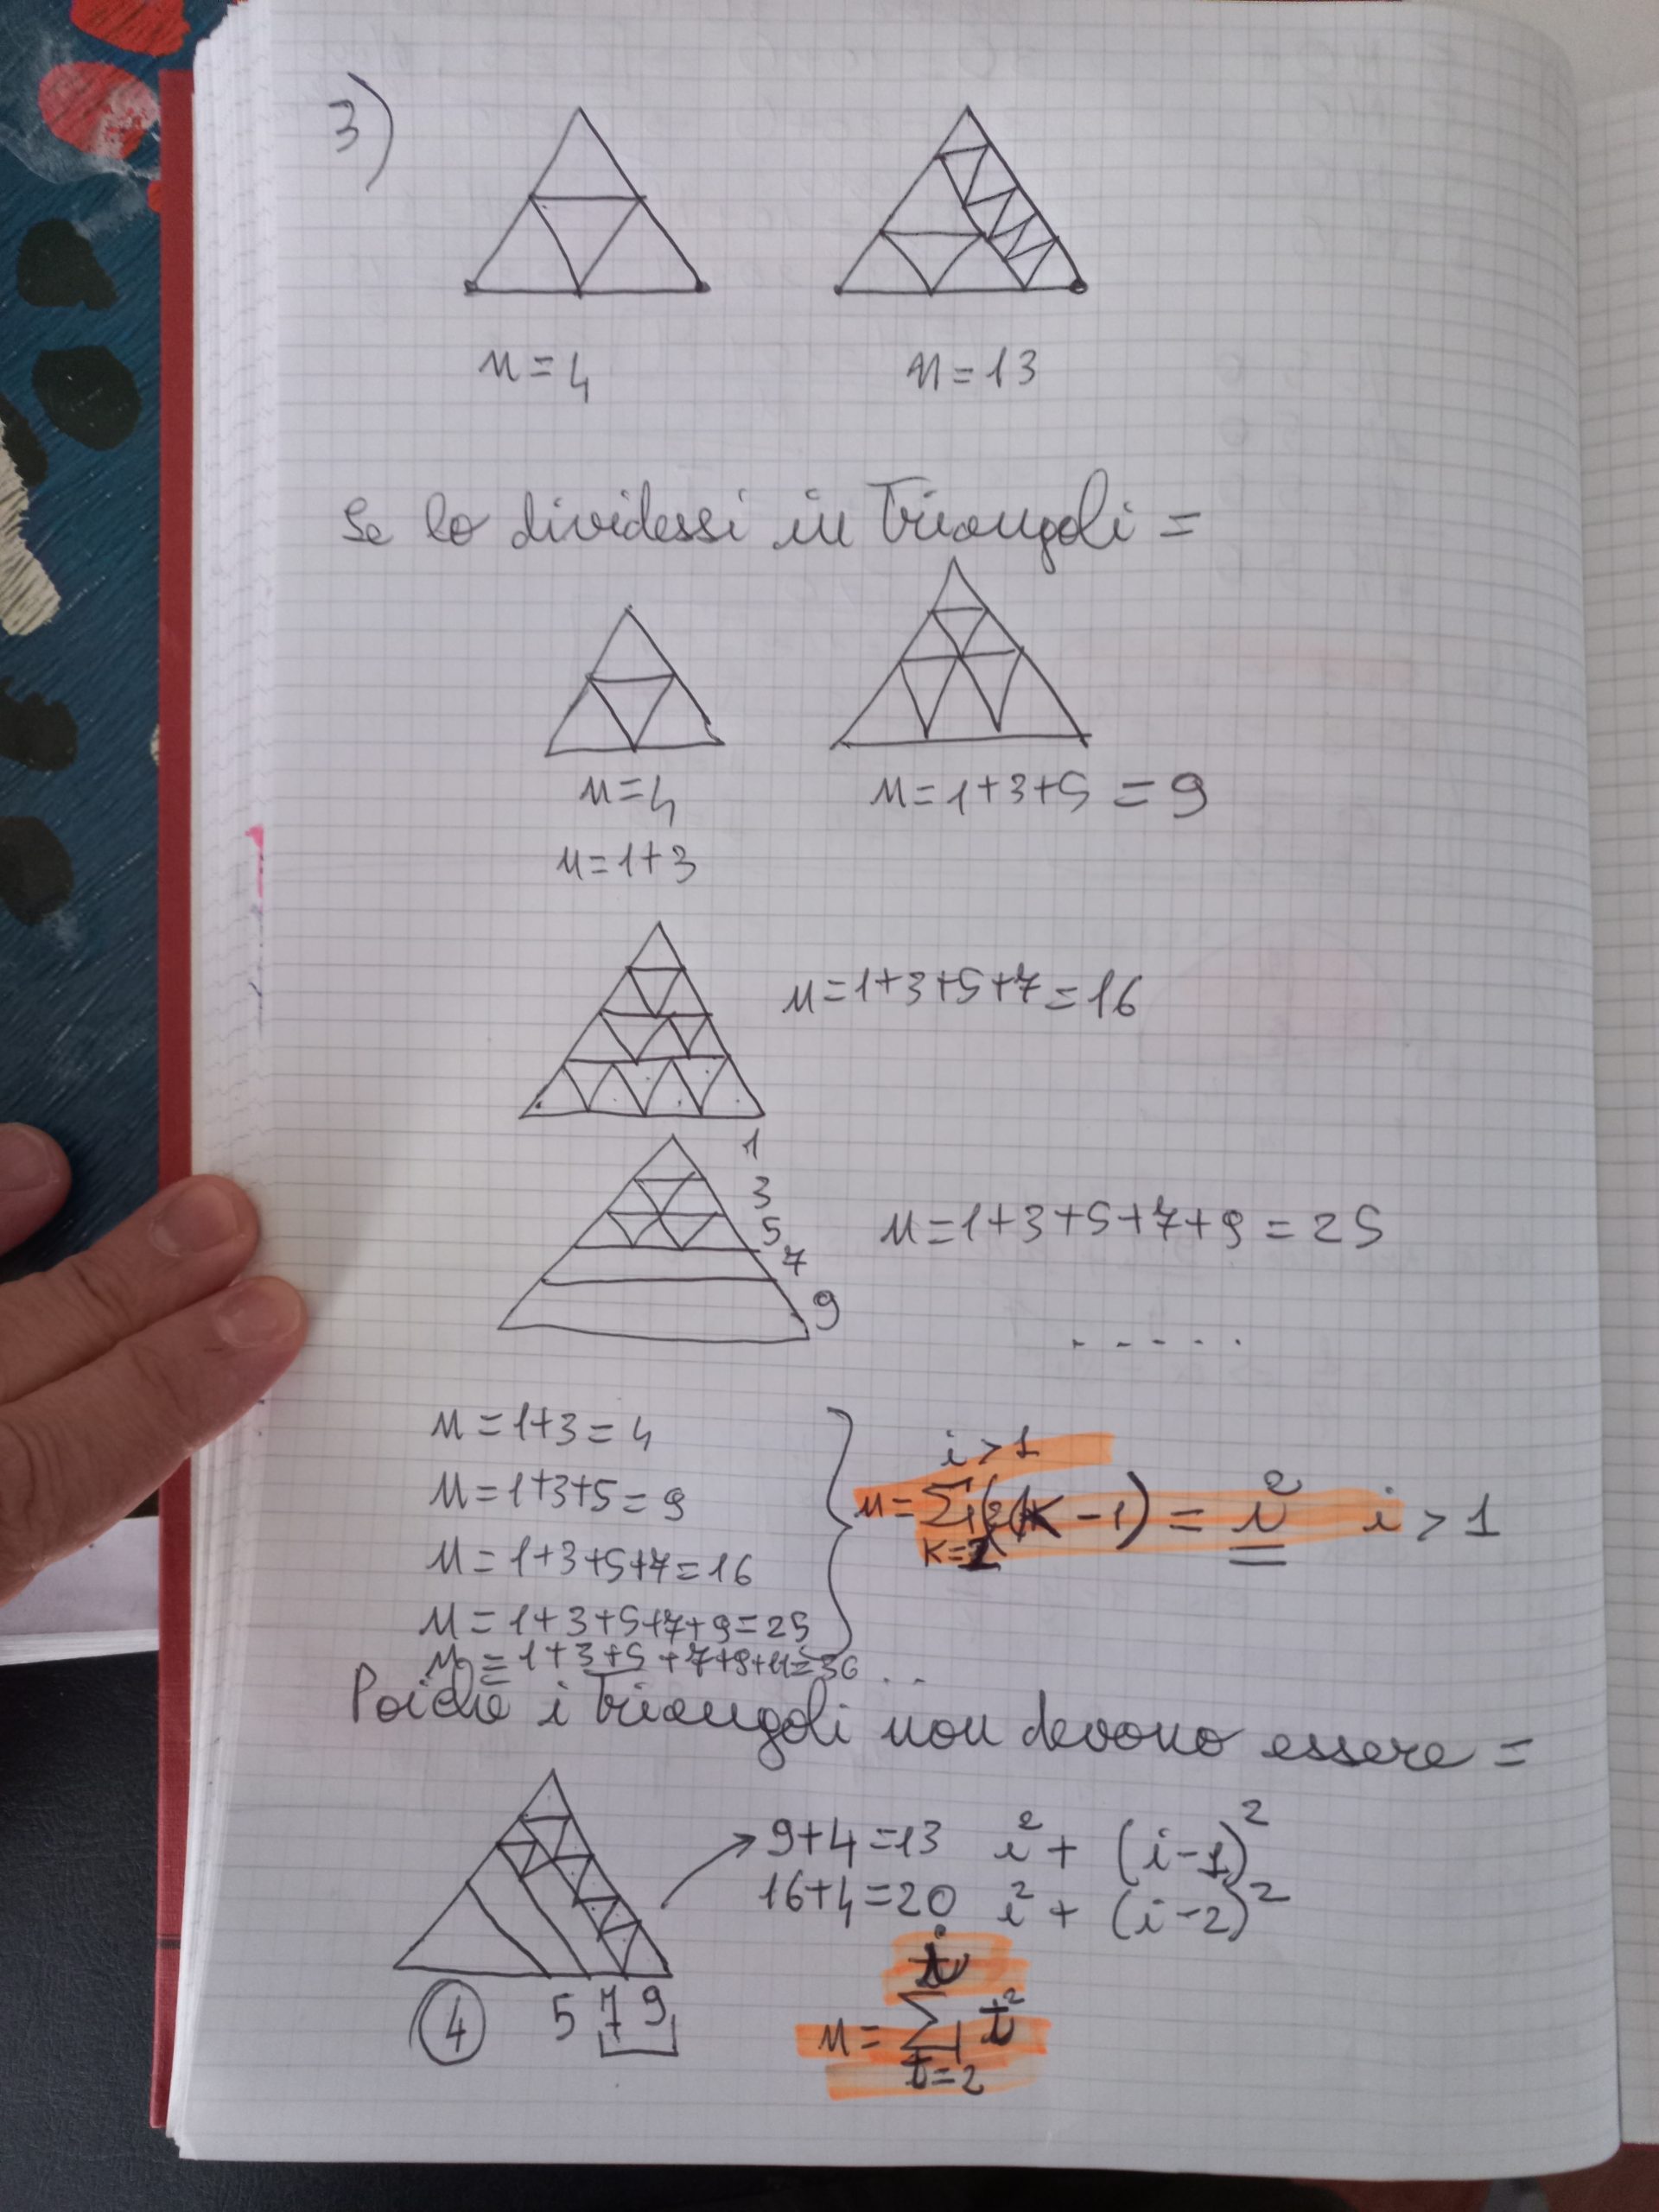 3)
n=4 n=13
Se lo dividessi in Triangoli =
n=4 n=1+3+5=9
n=1+3
n=1+3+5+7=16
1
3
5
7
9
n=1+3+5+7+9=25
.....
n=1+3=4
n=1+3+5=9
n=1+3+5+7=16
n=1+3+5+7+9=25
n=1+3+5+7+9+11=36 ...
i>1
n=∑(2K-1)=i² i>1
K=1
Poiché i Triangoli non devono essere =
9+4=13 i²+(i-1)²
16+4=20 i²+(i-2)²
4 5 7 9
i
n=∑t²
t=2